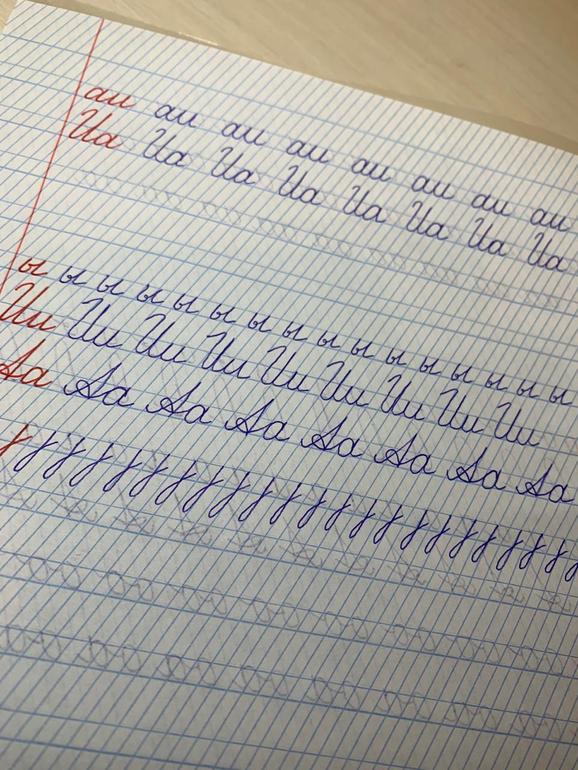 аи аи аи аи аи аи аи аи
Иа Иа Иа Иа Иа Иа Иа Иа
ы ы ы ы ы ы ы ы ы ы ы ы ы ы ы ы
Ии Ии Ии Ии Ии Ии Ии Ии Ии
Аа Аа Аа Аа Аа Аа Аа Аа